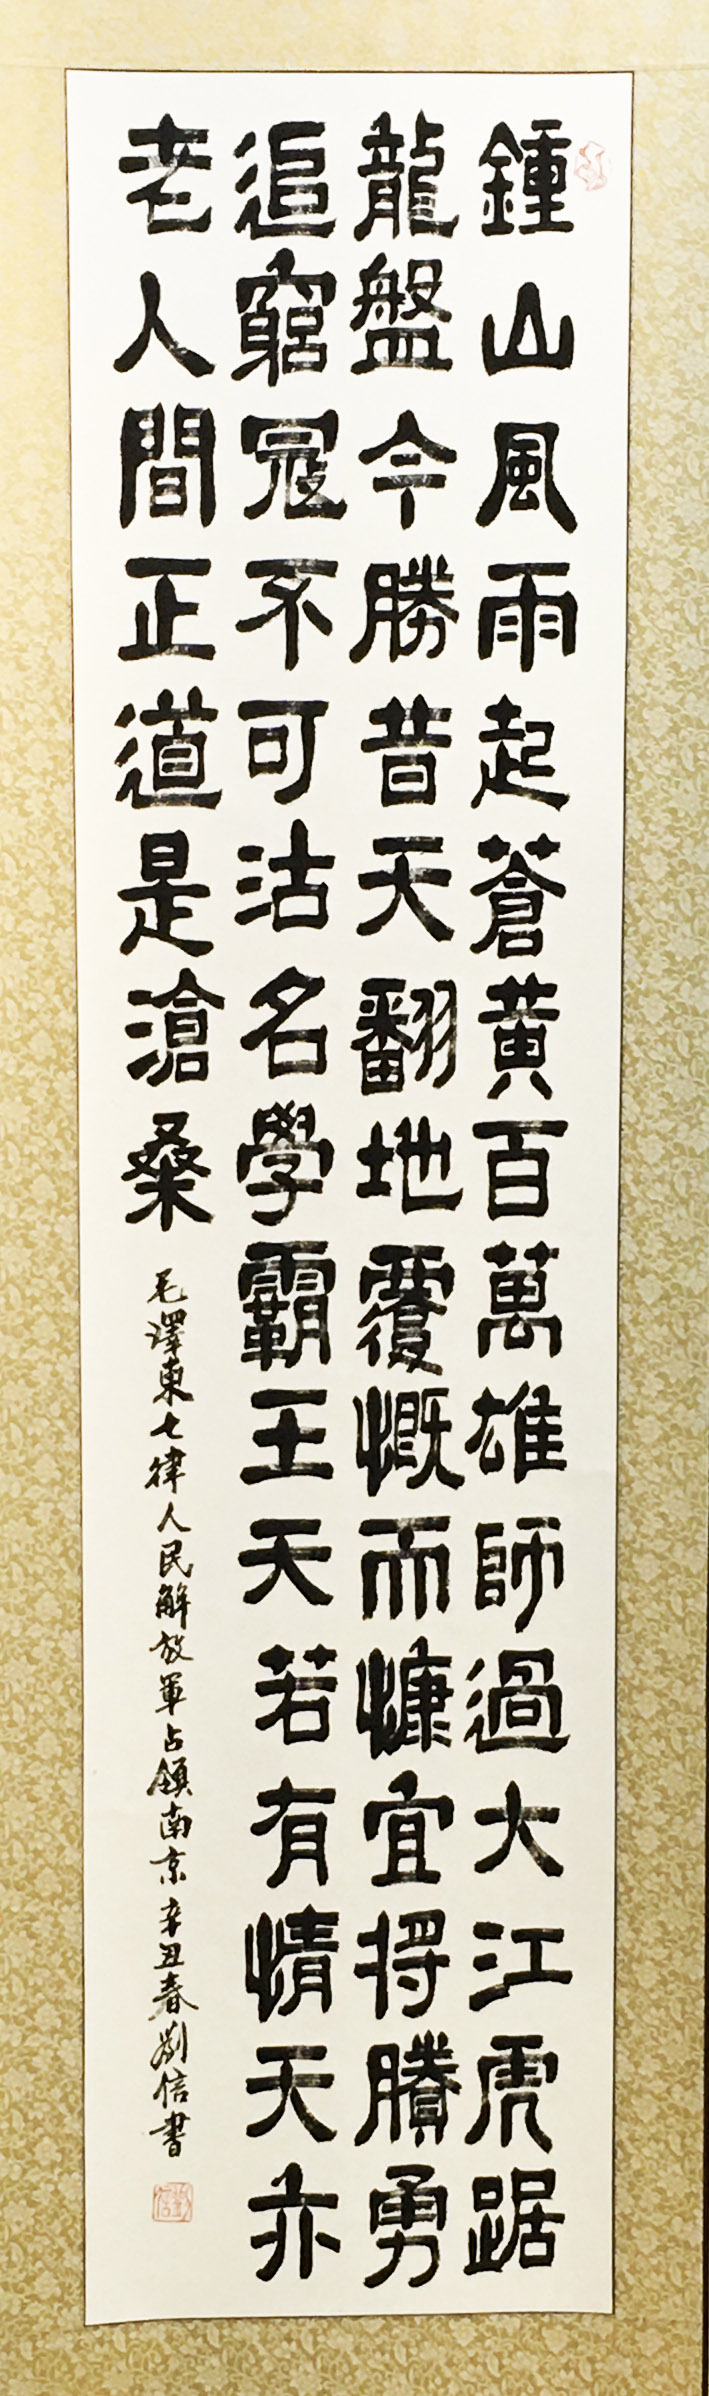 鍾山風雨起蒼黃百萬雄師過大江虎踞
龍盤今勝昔天翻地覆慨而慷宜將賸勇
追窮冦不可沽名學霸王天若有情天亦
老人間正道是滄桑
毛澤東七律人民解放軍占領南京 辛丑春劉信書